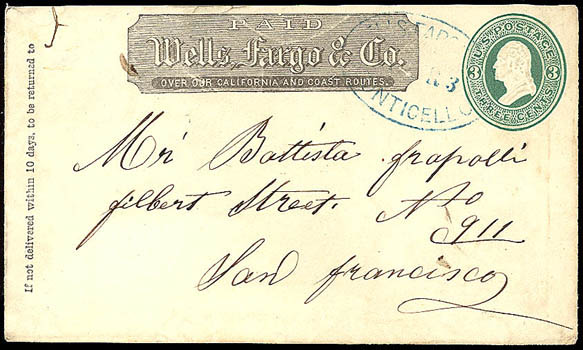 PAID
Wells, Fargo & Co.
OVER OUR CALIFORNIA AND COAST ROUTES.
3
NTICELLO
U.S. POSTAGE
3 3
THREE CENTS
If not delivered within 10 days, to be returned to
Mri Battista frapolli
gilbert Street. No
911
San francisco